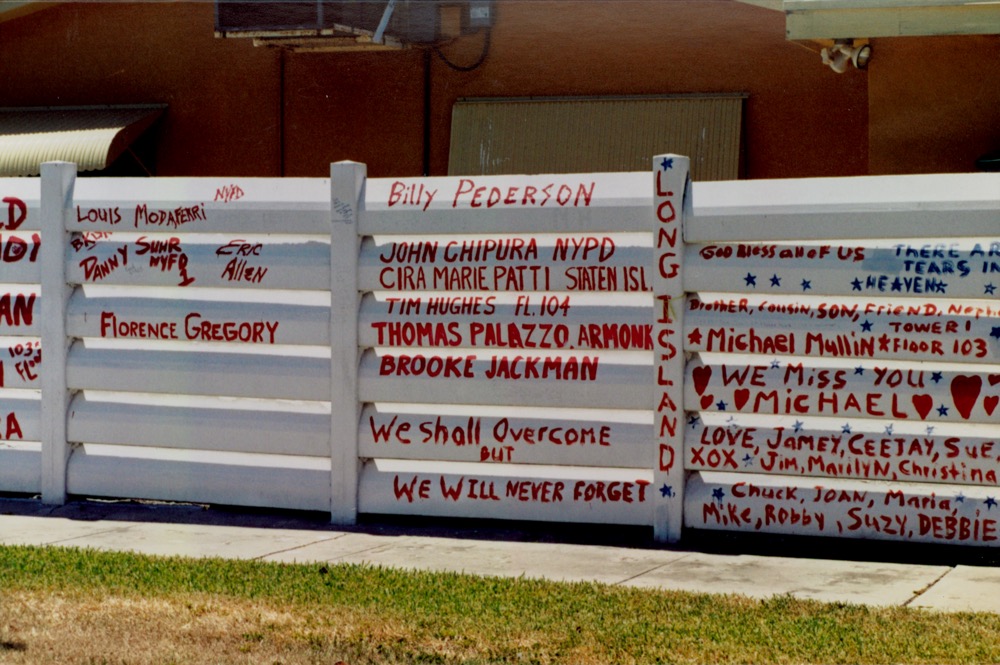 D
AN
103
A
NYPD
LOUIS MODAFERRI
DANNY SUHR
NYFD
ERIC
Allen
FLORENCE GREGORY
Billy PEDERSON
JOHN CHIPURA NYPD
CIRA MARIE PATTI STATEN ISL.
TIM HUGHES FL.104
THOMAS PALAZZO. ARMONK
BROOKE JACKMAN
We Shall Overcome
BUT
WE WILL NEVER FORGET
LONG ISLAND
GOD Bless all OF US
THERE AR
TEARS IN
HEAVEN
BroTHER, Cousin, SON, FrieND, Neph
TOWER 1
Michael Mullin FlOOR 103
WE Miss YOU
MICHAEL
LOVE, Jamey, CEEJAY, Sue,
XOX Jim, MarilyN, Christina
Chuck, JOAN, Maria,
Mike, Robby, Suzy, DEBBIE